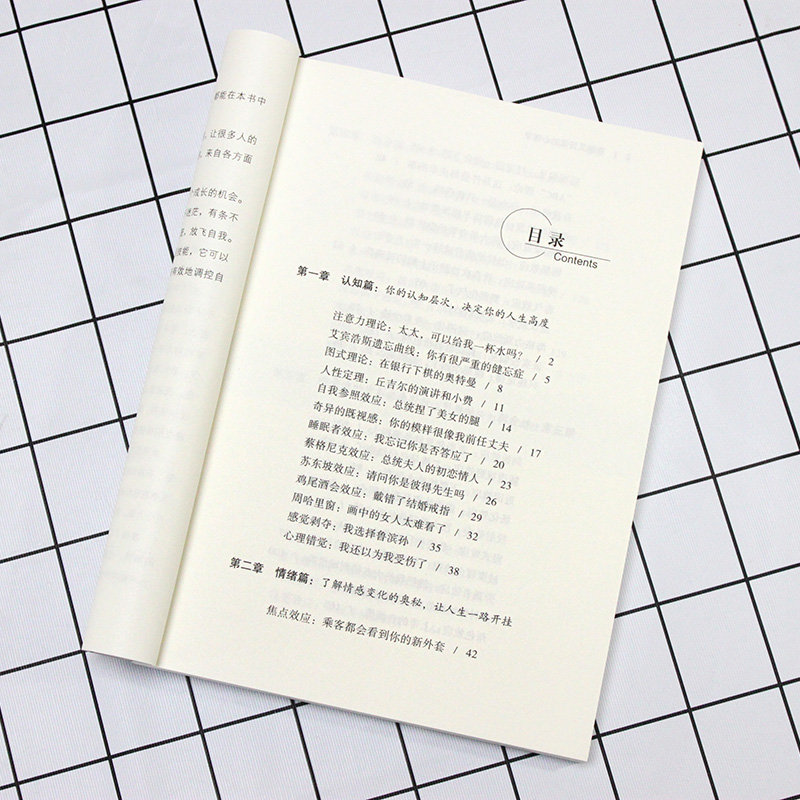 都能在本书中
让很多人的
来自各方面
成长的机会。
迷茫，有条不
放飞自我。
技能，它可以
有效地调控自
目录
Contents
第一章 认知篇：你的认知层次，决定你的人生高度
注意力理论：太太，可以给我一杯水吗？ / 2
艾宾浩斯遗忘曲线：你有很严重的健忘症 / 5
图式理论：在银行下棋的奥特曼 / 8
人性定理：丘吉尔的演讲和小费 / 11
自我参照效应：总统捏了美女的腿 / 14
奇异的既视感：你的模样很像我前任丈夫 / 17
睡眠者效应：我忘记你是否答应了 / 20
蔡格尼克效应：总统夫人的初恋情人 / 23
苏东坡效应：请问你是彼得先生吗 / 26
鸡尾酒会效应：戴错了结婚戒指 / 29
周哈里窗：画中的女人太难看了 / 32
感觉剥夺：我选择鲁滨孙 / 35
心理错觉：我还以为我受伤了 / 38
第二章 情绪篇：了解情感变化的奥秘，让人生一路开挂
焦点效应：乘客都会看到你的新外套 / 42